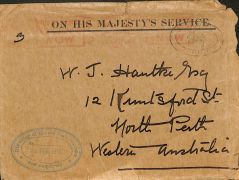 ON HIS MAJESTY'S SERVICE.
3
W. J. Hautke Esq
12 Knutsford St
North Perth
Western Australia